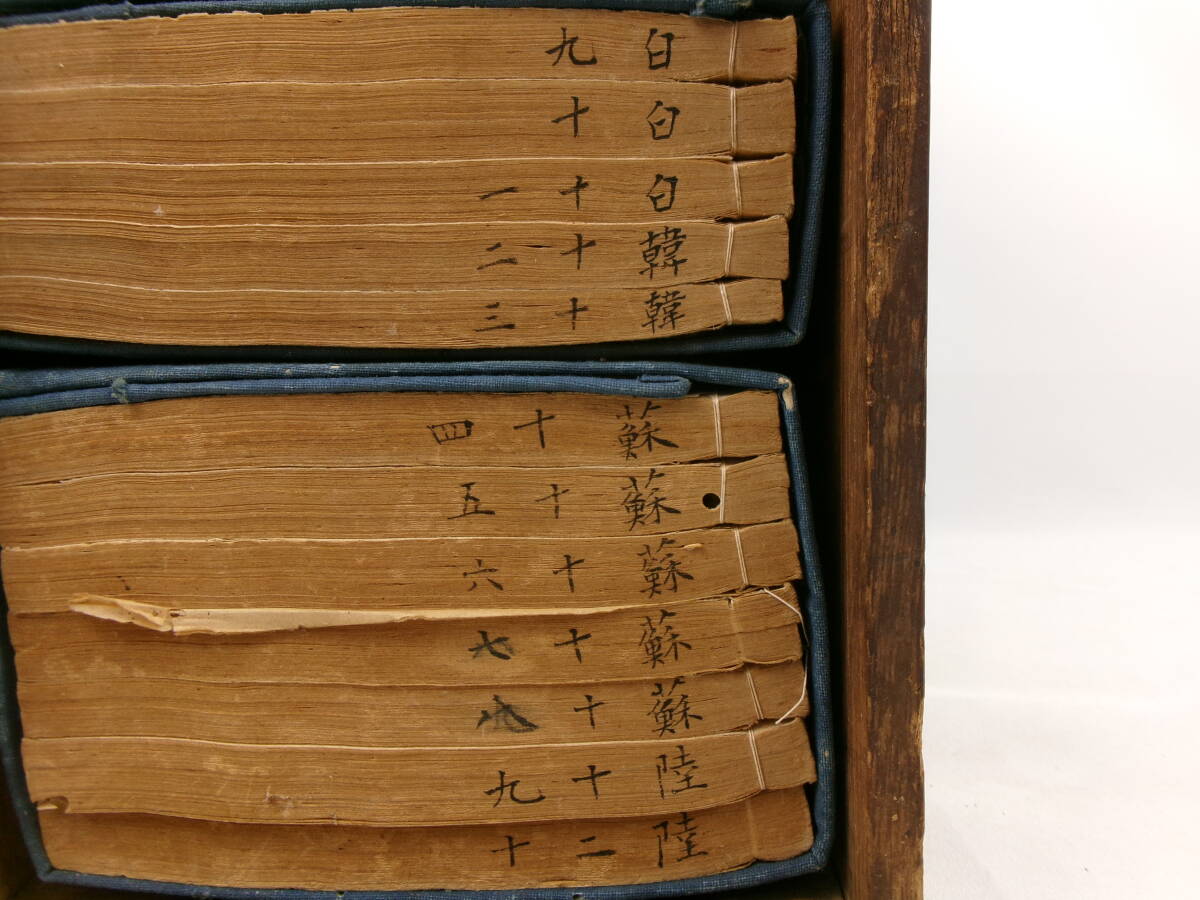 白九
白十
白十一
韓十二
韓十三
蘇十四
蘇十五
蘇十六
蘇十七
蘇十
陸十九
陸二十